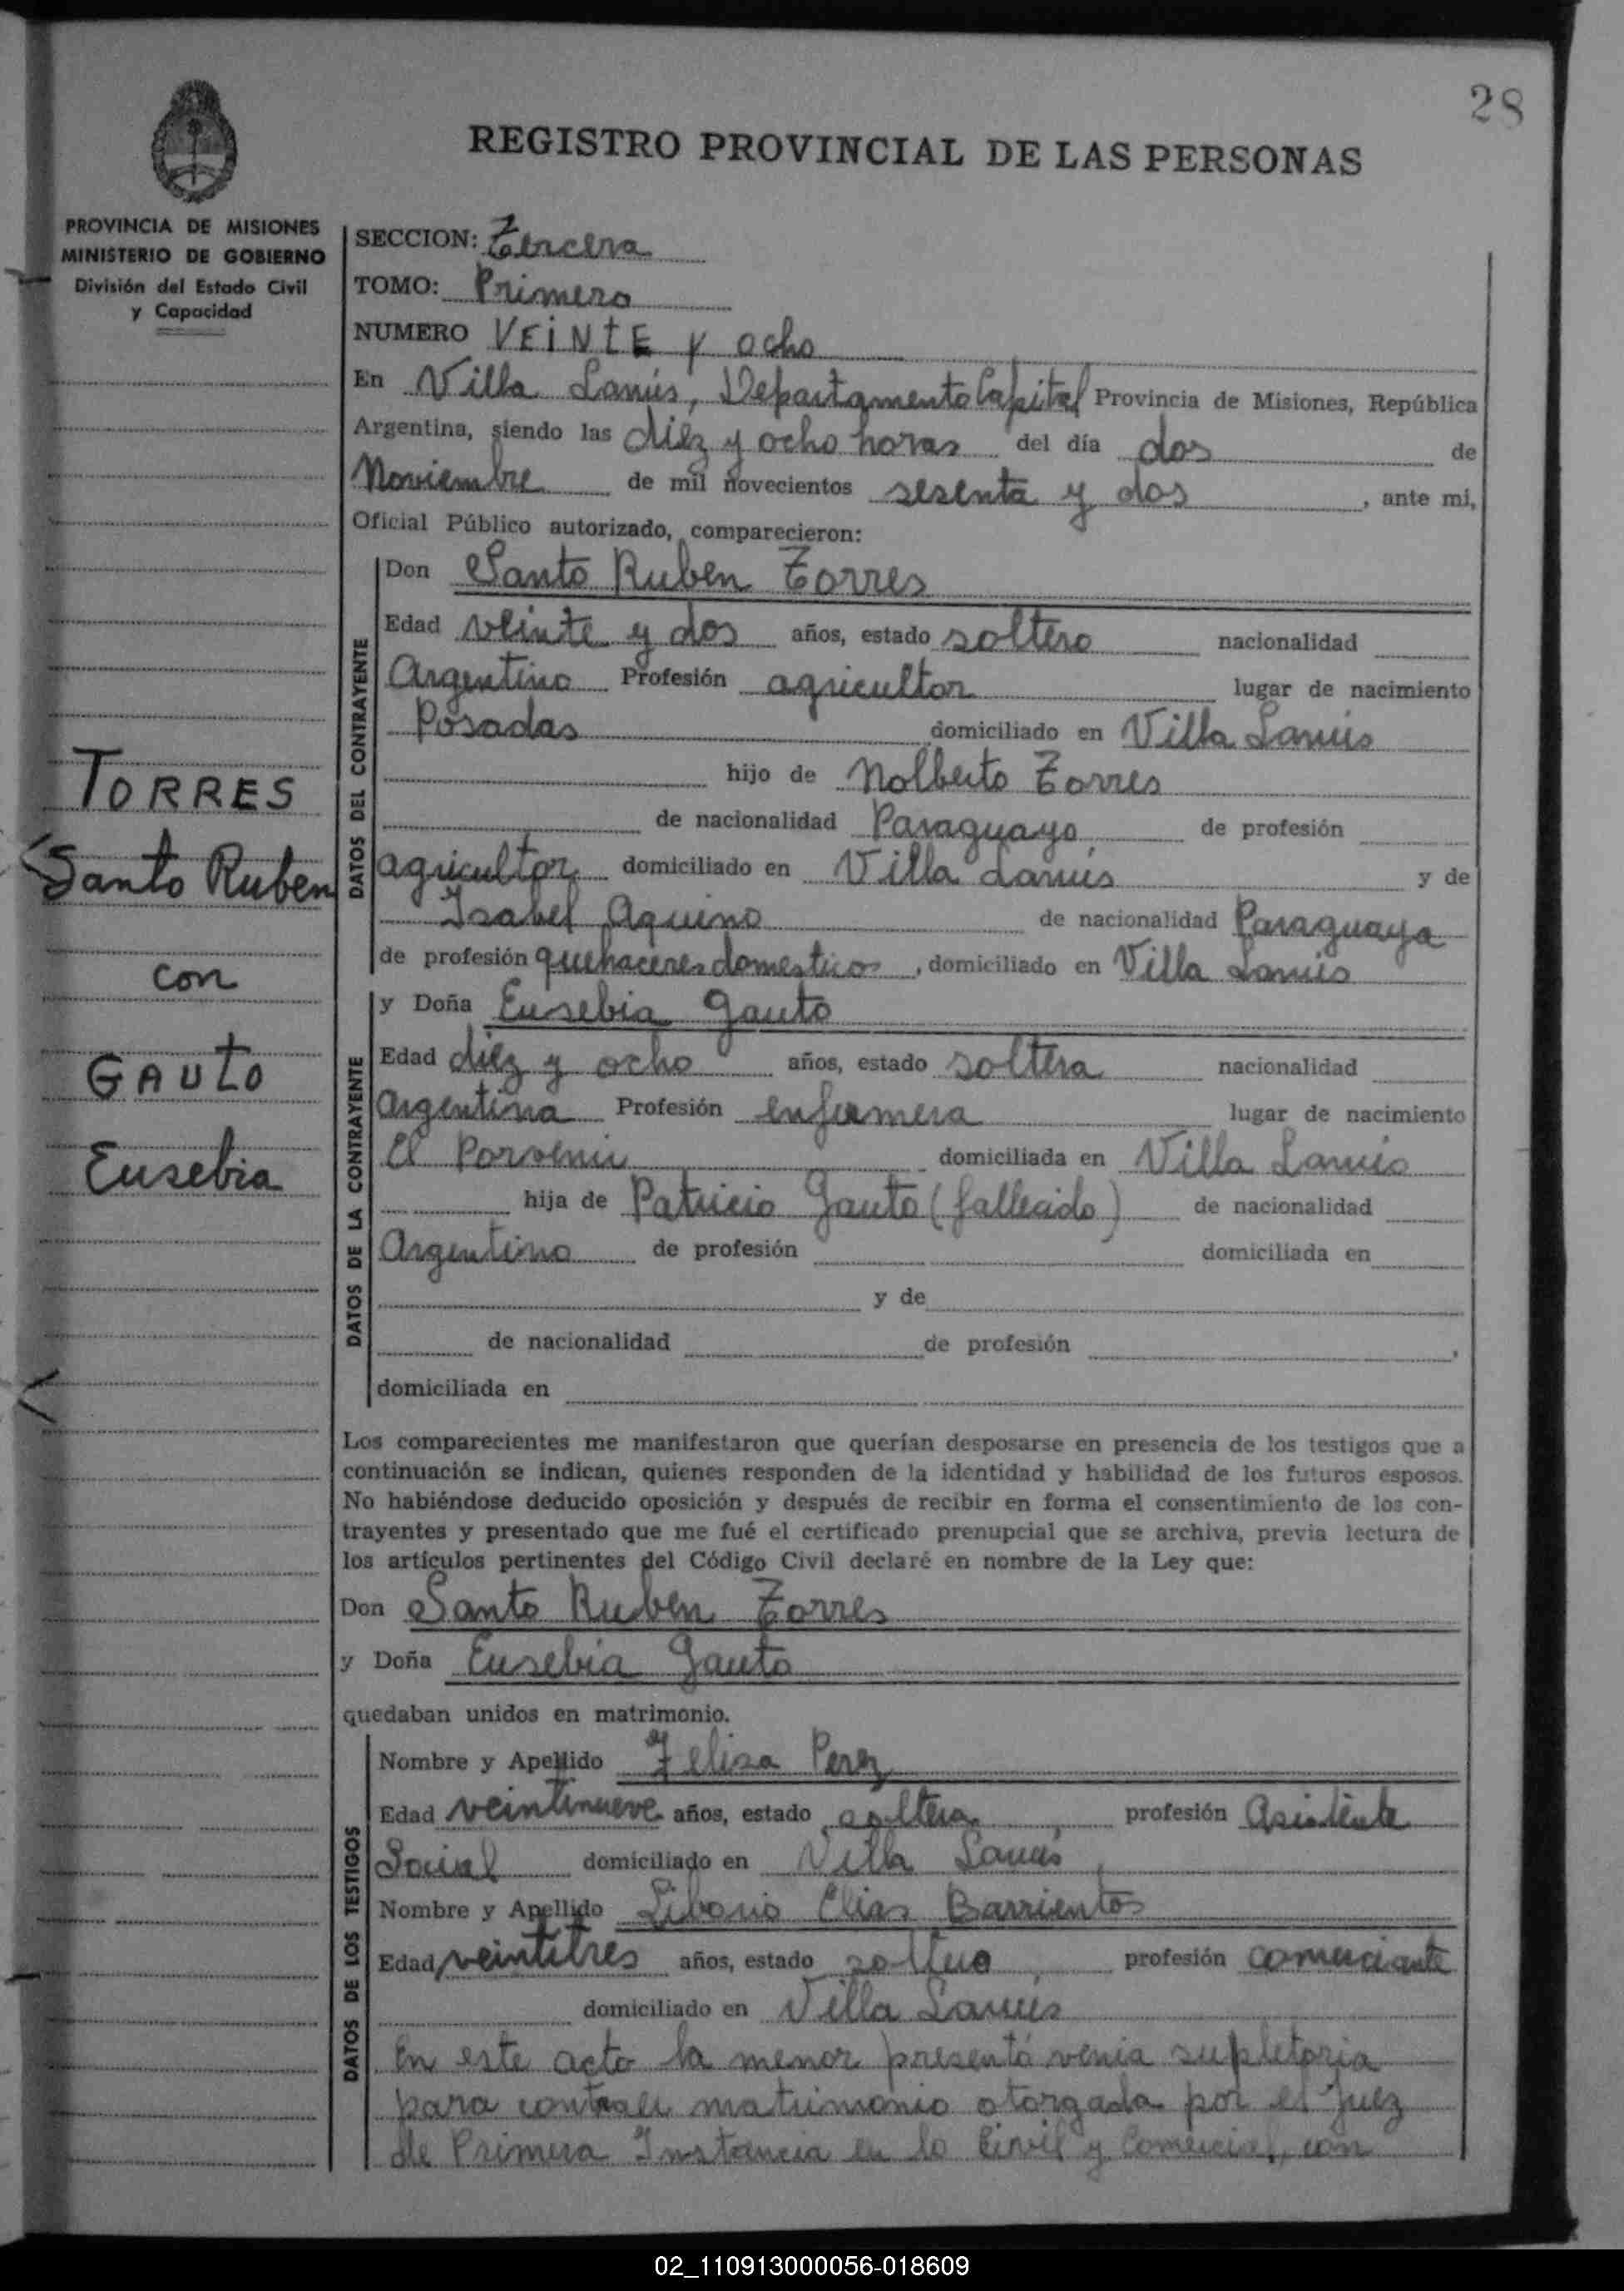 28
REGISTRO PROVINCIAL DE LAS PERSONAS
PROVINCIA DE MISIONES
MINISTERIO DE GOBIERNO
División del Estado Civil
y Capacidad
TORRES
Santo Ruben
con
GAUTO
Eusebia
SECCION: Tercera
TOMO: Primero
NUMERO VEINTE y ocho
En Villa Lanús, Departamento Capital Provincia de Misiones, República
Argentina, siendo las diez y ocho horas del día dos de
Noviembre de mil novecientos sesenta y dos, ante mi,
Oficial Público autorizado, comparecieron:
DATOS DEL CONTRAYENTE
Don Santo Ruben Torres
Edad veinte y dos años, estado soltero nacionalidad
Argentino Profesión agricultor lugar de nacimiento
Posadas domiciliado en Villa Lanús
hijo de Nolberto Torres
de nacionalidad Paraguayo de profesión
agricultor domiciliado en Villa Lanús y de
Isabel Aquino de nacionalidad Paraguaya
de profesión quehaceres domesticos, domiciliado en Villa Lanús
DATOS DE LA CONTRAYENTE
y Doña Eusebia Gauto
Edad diez y ocho años, estado soltera nacionalidad
Argentina Profesión enfermera lugar de nacimiento
El Porvenir domiciliada en Villa Lanús
hija de Patricio Gauto (fallecido) de nacionalidad
Argentino de profesión domiciliada en
y de
de nacionalidad de profesión ,
domiciliada en
Los comparecientes me manifestaron que querían desposarse en presencia de los testigos que a
continuación se indican, quienes responden de la identidad y habilidad de los futuros esposos.
No habiéndose deducido oposición y después de recibir en forma el consentimiento de los con-
trayentes y presentado que me fué el certificado prenupcial que se archiva, previa lectura de
los artículos pertinentes del Código Civil declaré en nombre de la Ley que:
Don Santo Ruben Torres
y Doña Eusebia Gauto
quedaban unidos en matrimonio.
DATOS DE LOS TESTIGOS
Nombre y Apellido Felisa Perez
Edad veintinueve años, estado soltera, profesión Asistente
Social domiciliado en Villa Lanús,
Nombre y Apellido Liborio Elias Barrientos
Edad veintitres años, estado soltero, profesión comerciante
domiciliado en Villa Lanús
En este acto la menor presentó venia supletoria
para contraer matrimonio otorgada por el Juez
de Primera Instancia en lo Civil y Comercial, con
02_110913000056-018609